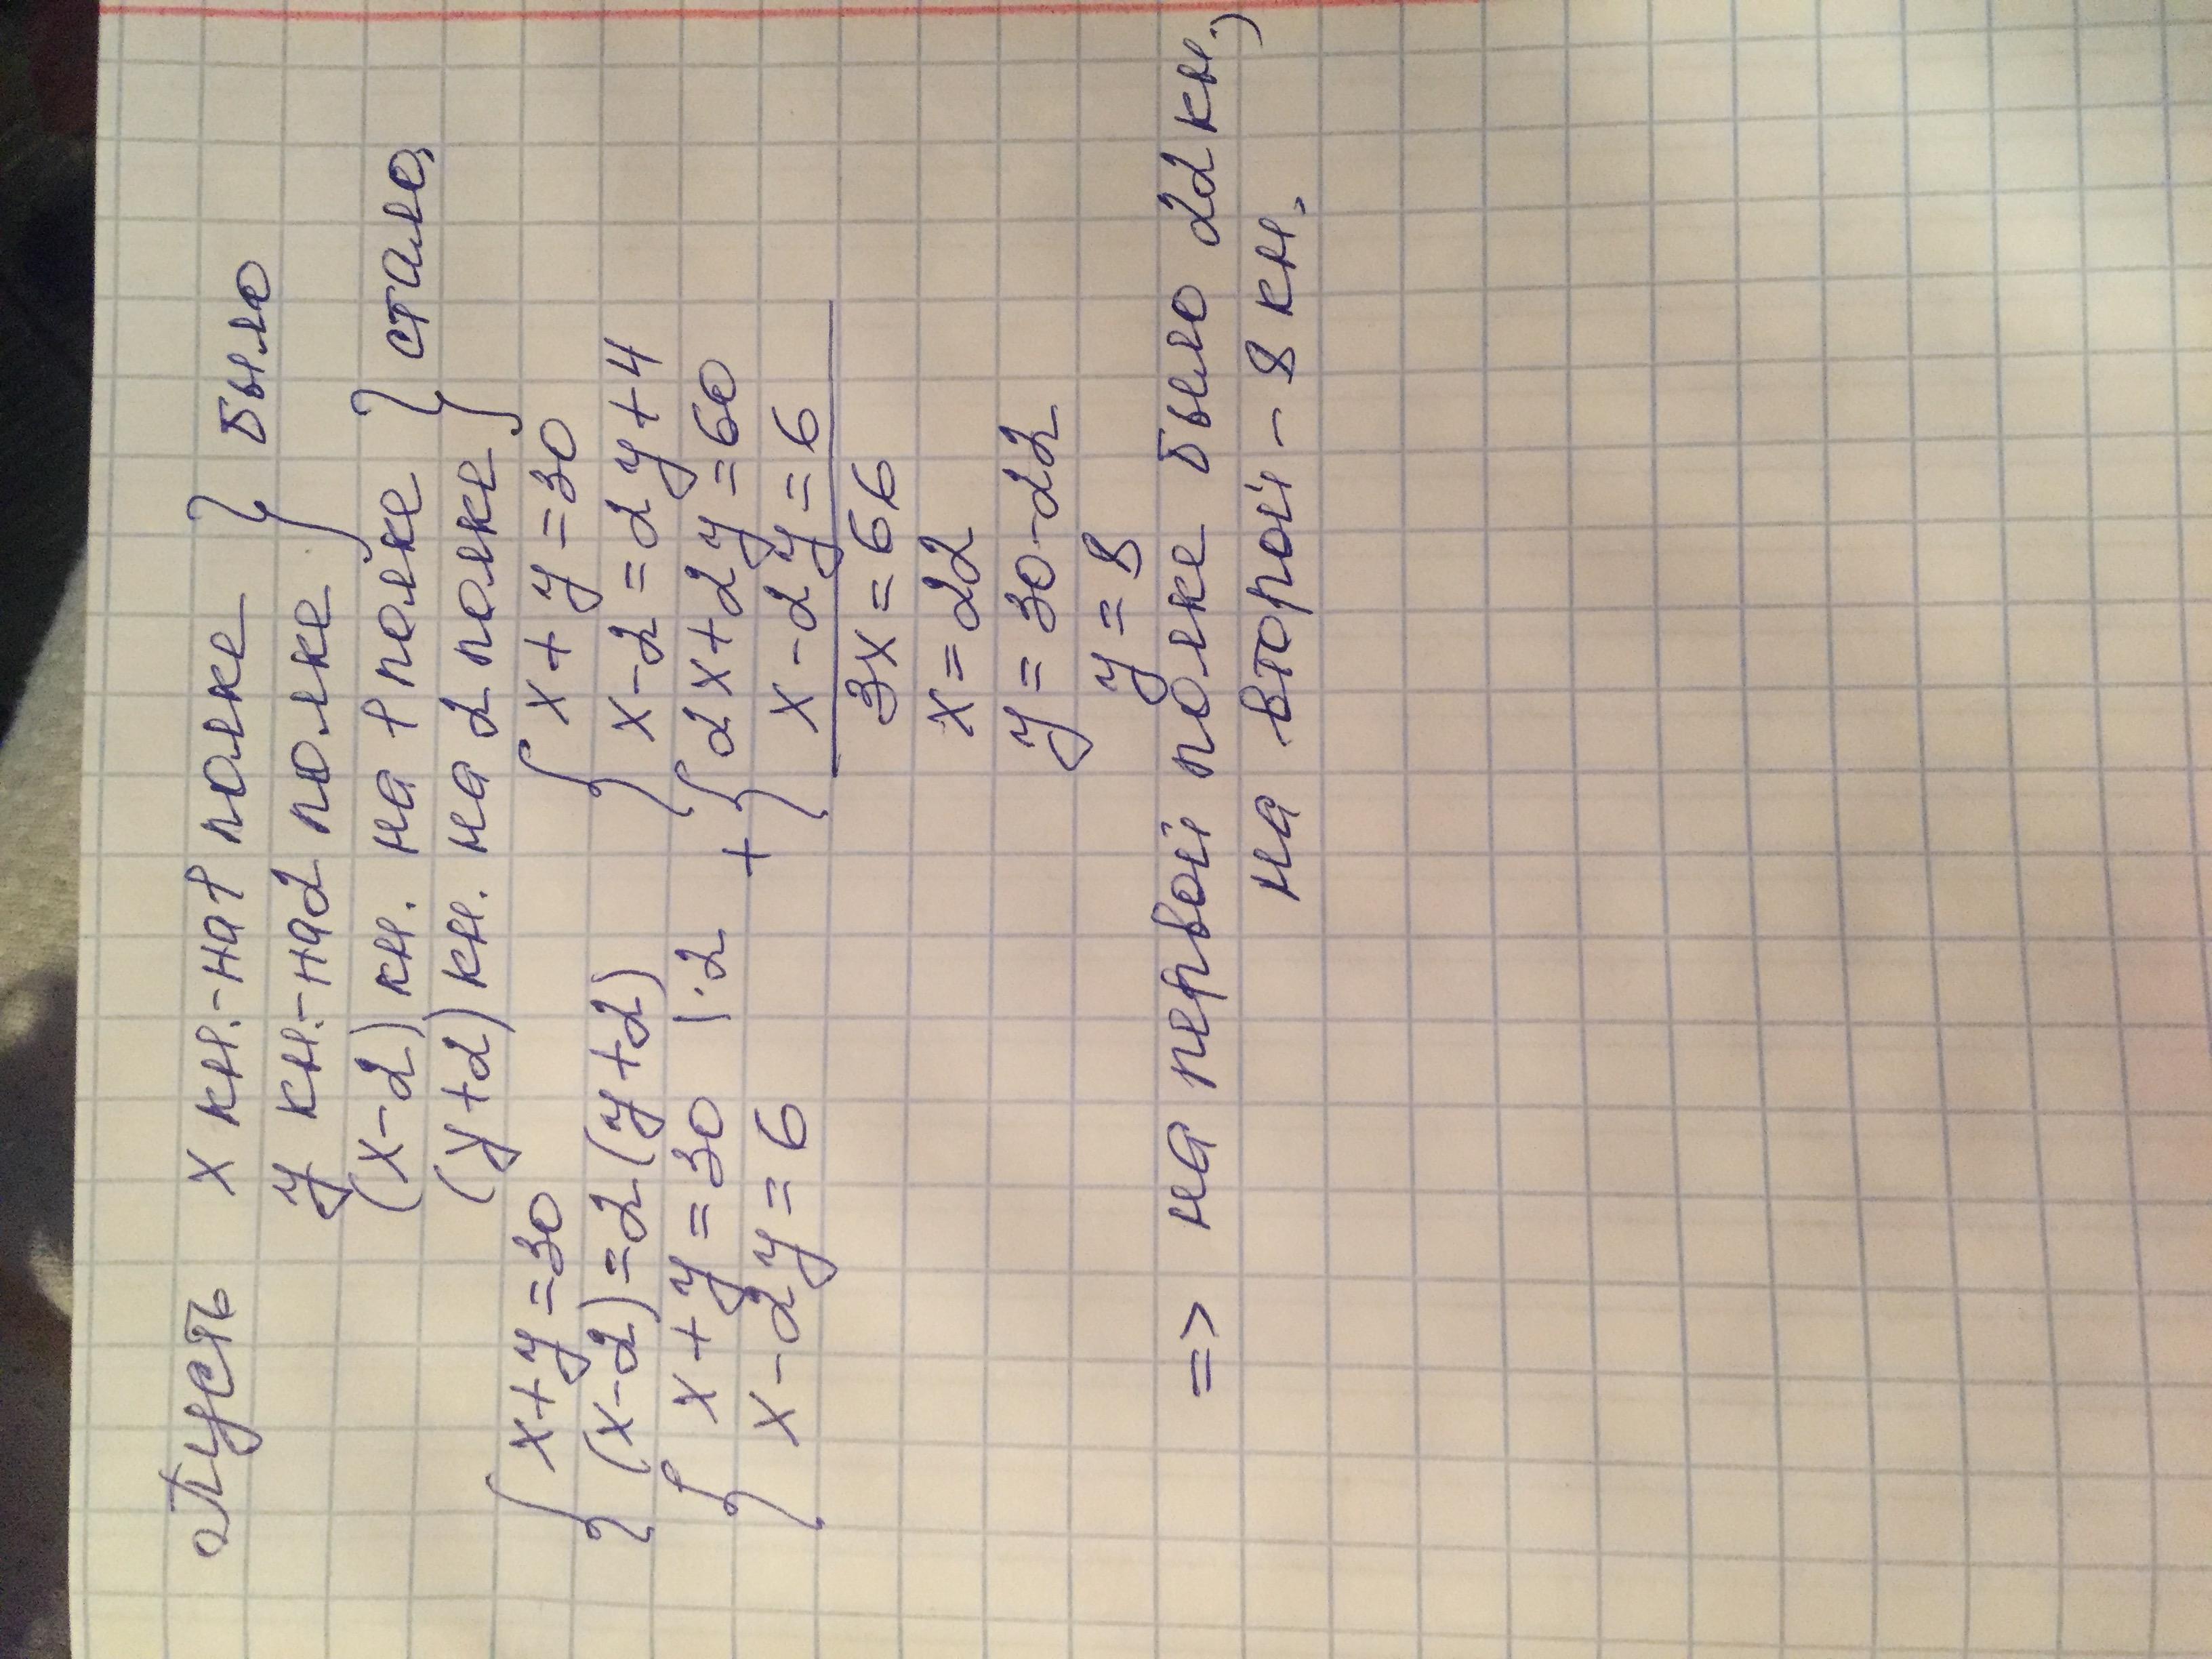 Пусть x кн.-на 1 полке } было
y кн.-на 2 полке
(x-2) кн. на 1 полке } стало,
(y+2) кн. на 2 полке
{ x+y=30 { x+y=30
(x-2)=2(y+2) x-2=2y+4
{ x+y=30 |·2 + { 2x+2y=60
x-2y=6 x-2y=6
3x=66
x=22
y=30-22
y=8
=> на первой полке было 22 кн.,
на второй - 8 кн.